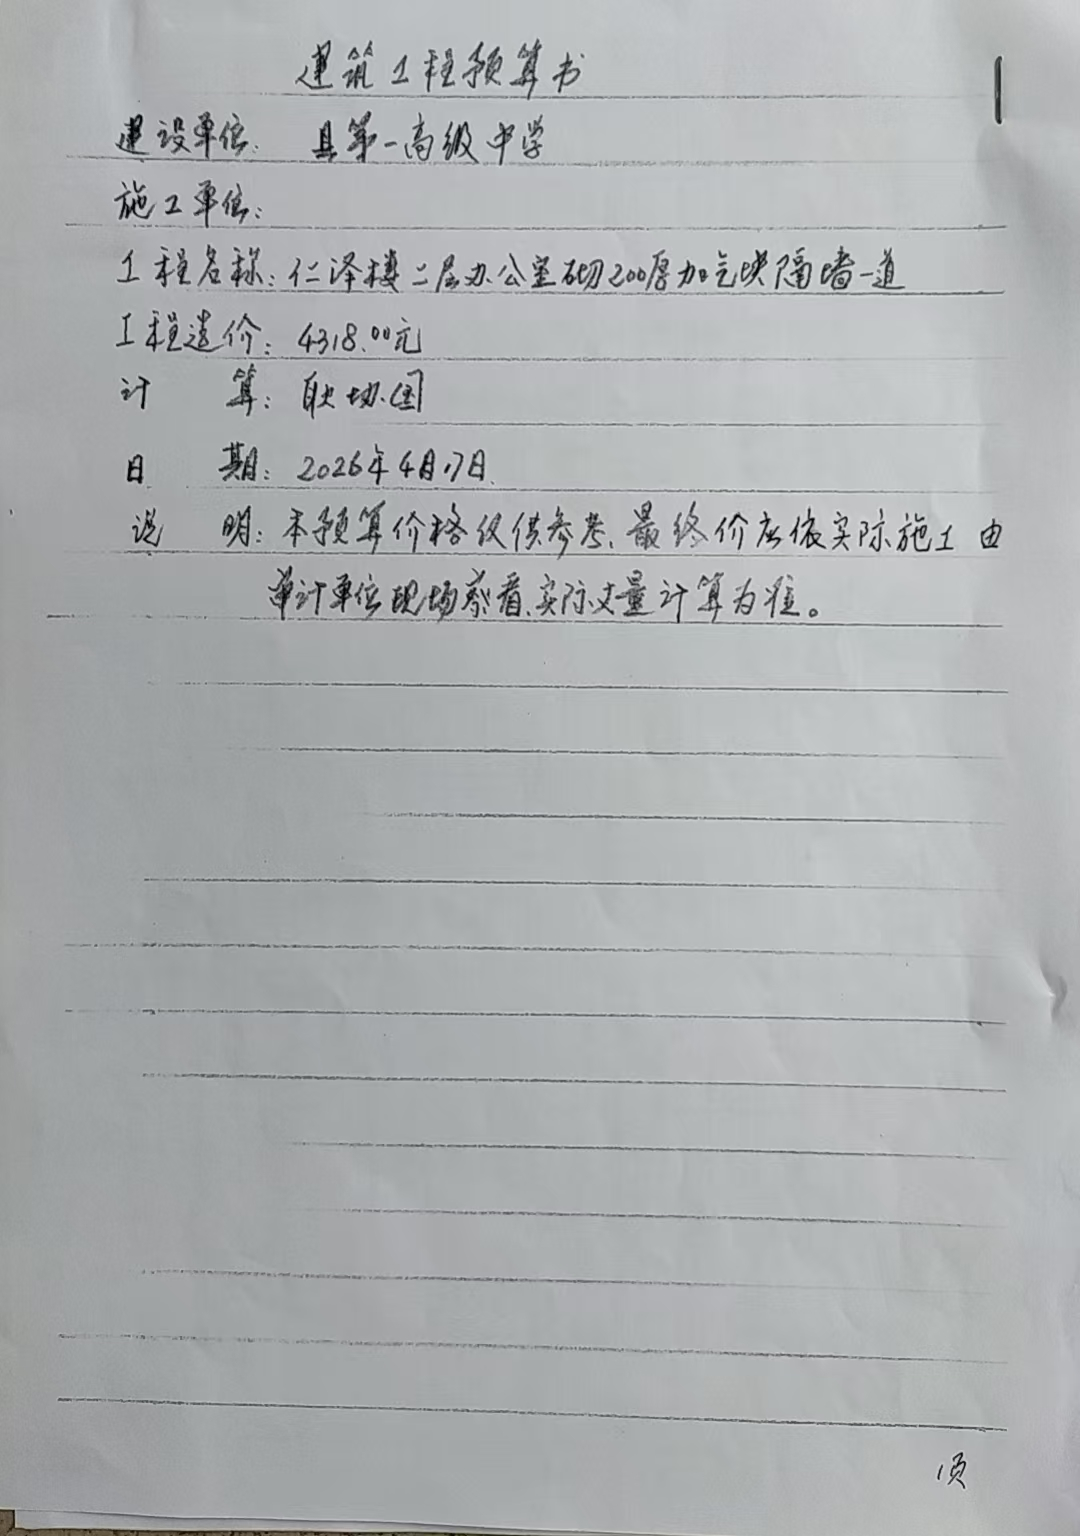 建筑工程预算书
建设单位: 县第一高级中学
施工单位:
工程名称: 仁泽楼二层办公室砌200厚加气块隔墙一道
工程造价: 4318.00元
计 算: 耿协国
日 期: 2026年4月17日.
说 明: 本预算价格仅供参考.最终价应依实际施工由
审计单位现场察看.实际丈量计算为准。
1页